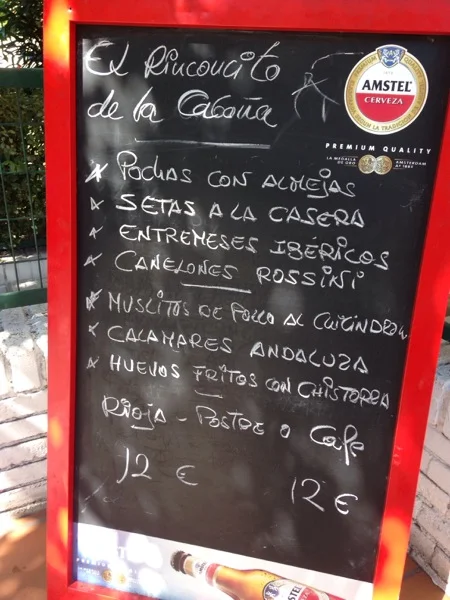 El Rinconcito
de la Cabaña
AMSTEL
CERVEZA
PREMIUM QUALITY
LA MEDALLA
DE ORO
AMSTERDAM
AY 1883
POCHAS CON ALMEJAS
SETAS A LA CASERA
ENTREMESES IBÉRICOS
CANELONES ROSSINI
MUSLITOS DE POLLO AL
CALAMARES ANDALUZA
HUEVOS FRITOS CON CHISTORRA
RIOJA - POSTRE o Café
12 €
12 €